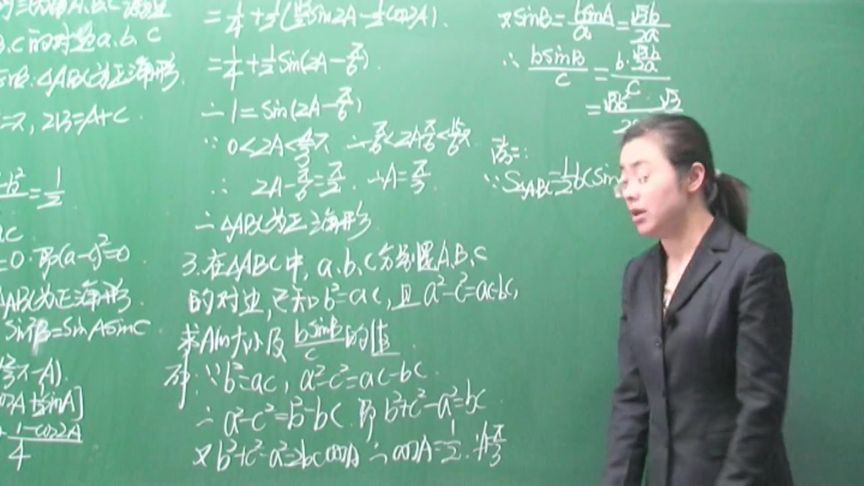 B.C的对边a.b.C
△ABC为正三角形.
2B=A+C.
=1/2
ac
=0.即(a-c)²=0
△ABC为正三角形.
Sin²B=SinASinC
-A)
1-cos2A
4
=1/4+1/2(√3/2Sin2A-1/2cos2A).
=1/4+1/2Sin(2A-π/6).
∴1=Sin(2A-π/6)
∵0<2A<4/3π
∴2A-π/6=π/2.∴A=π/3.
∴△ABC为正三角形.
3.在△ABC中,a.b.C分别是A.B.C
的对边,已知b²=ac,且a²-c²=ac-bc,
求A的大小及bSinB/c的值.
∵b²=ac,a²-c²=ac-bc.
∴a²-c²=b²-bc.即b²+c²-a²=bc
又b²+c²-a²=2bccosA∴cosA=1/2.∴A=π/3
又SinB=bSinA/a=√3b/2a
∴bSinB/c=b·√3b/2a/c
=√3b²
法二:
∵S△ABC=1/2bcSin